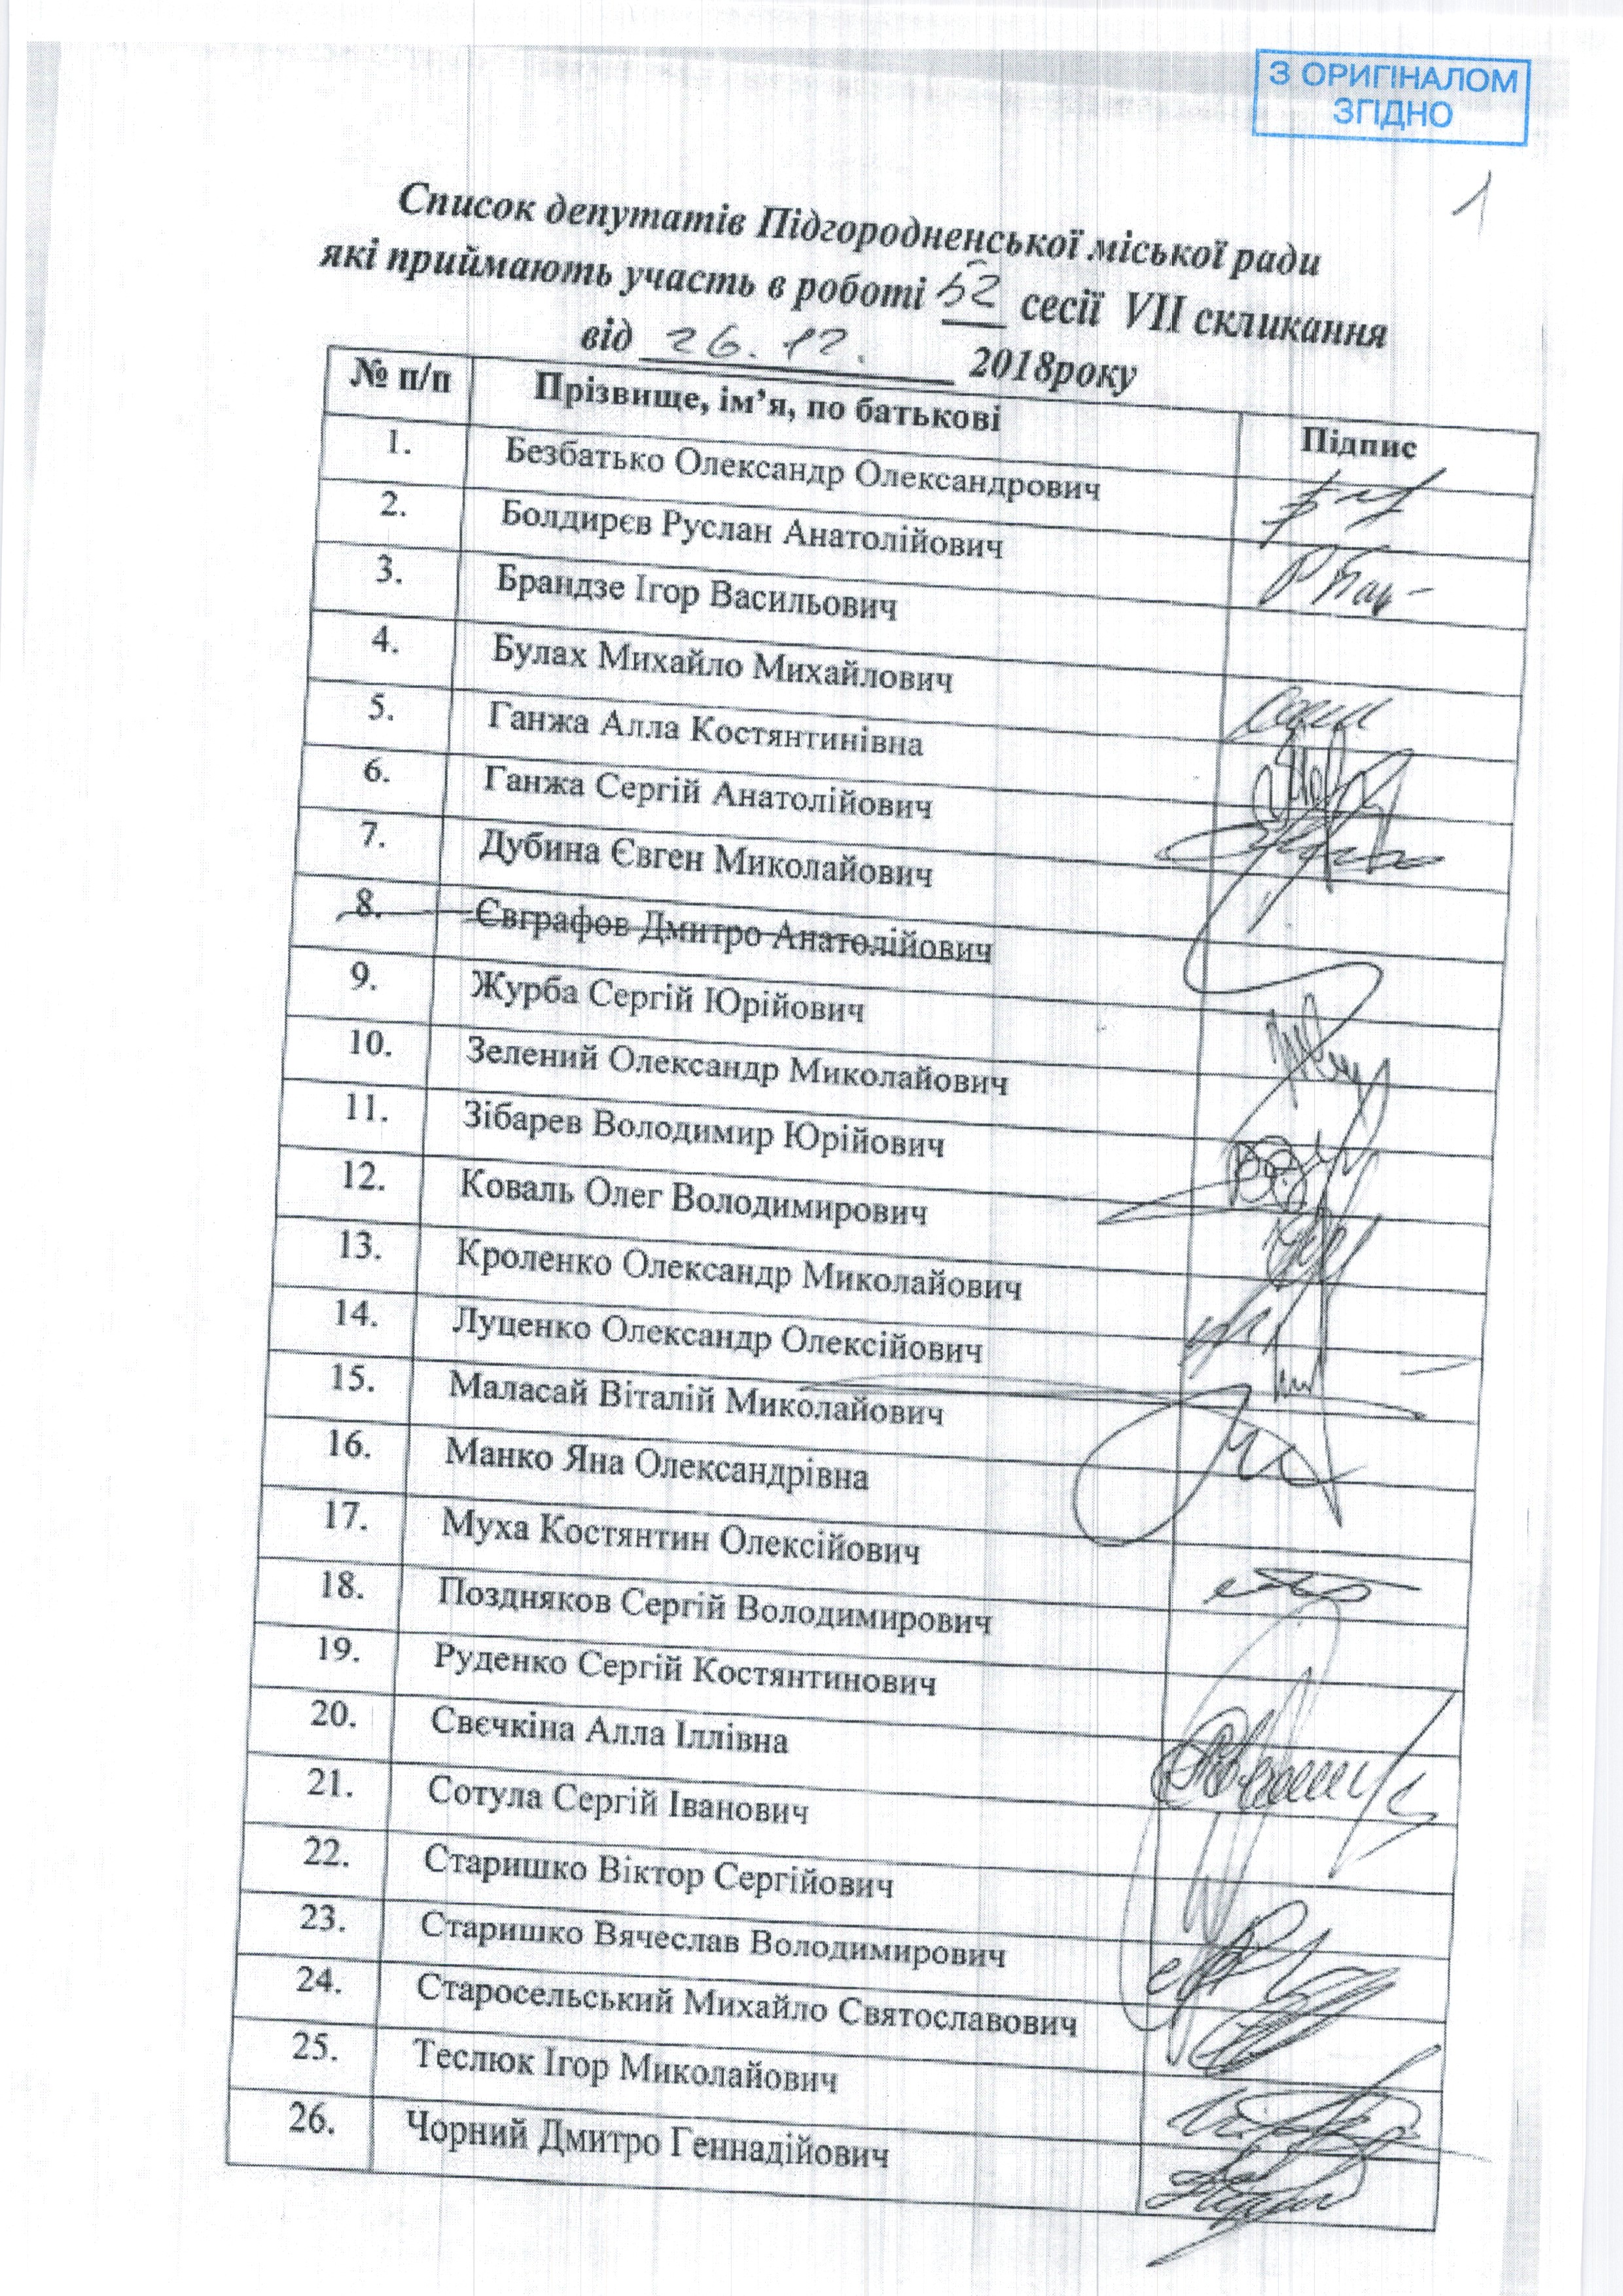 З ОРИГІНАЛОМ
ЗГІДНО
1
Список депутатів Підгородненської міської ради
які приймають участь в роботі 52 сесії VII скликання
від 26.12. 2018року
№ п/п Прізвище, ім’я, по батькові Підпис
1. Безбатько Олександр Олександрович
2. Болдирєв Руслан Анатолійович
3. Брандзе Ігор Васильович
4. Булах Михайло Михайлович
5. Ганжа Алла Костянтинівна
6. Ганжа Сергій Анатолійович
7. Дубина Євген Миколайович
8. Євграфов Дмитро Анатолійович
9. Журба Сергій Юрійович
10. Зелений Олександр Миколайович
11. Зібарев Володимир Юрійович
12. Коваль Олег Володимирович
13. Кроленко Олександр Миколайович
14. Луценко Олександр Олексійович
15. Маласай Віталій Миколайович
16. Манко Яна Олександрівна
17. Муха Костянтин Олексійович
18. Поздняков Сергій Володимирович
19. Руденко Сергій Костянтинович
20. Свєчкіна Алла Іллівна
21. Сотула Сергій Іванович
22. Старишко Віктор Сергійович
23. Старишко Вячеслав Володимирович
24. Старосельський Михайло Святославович
25. Теслюк Ігор Миколайович
26. Чорний Дмитро Геннадійович